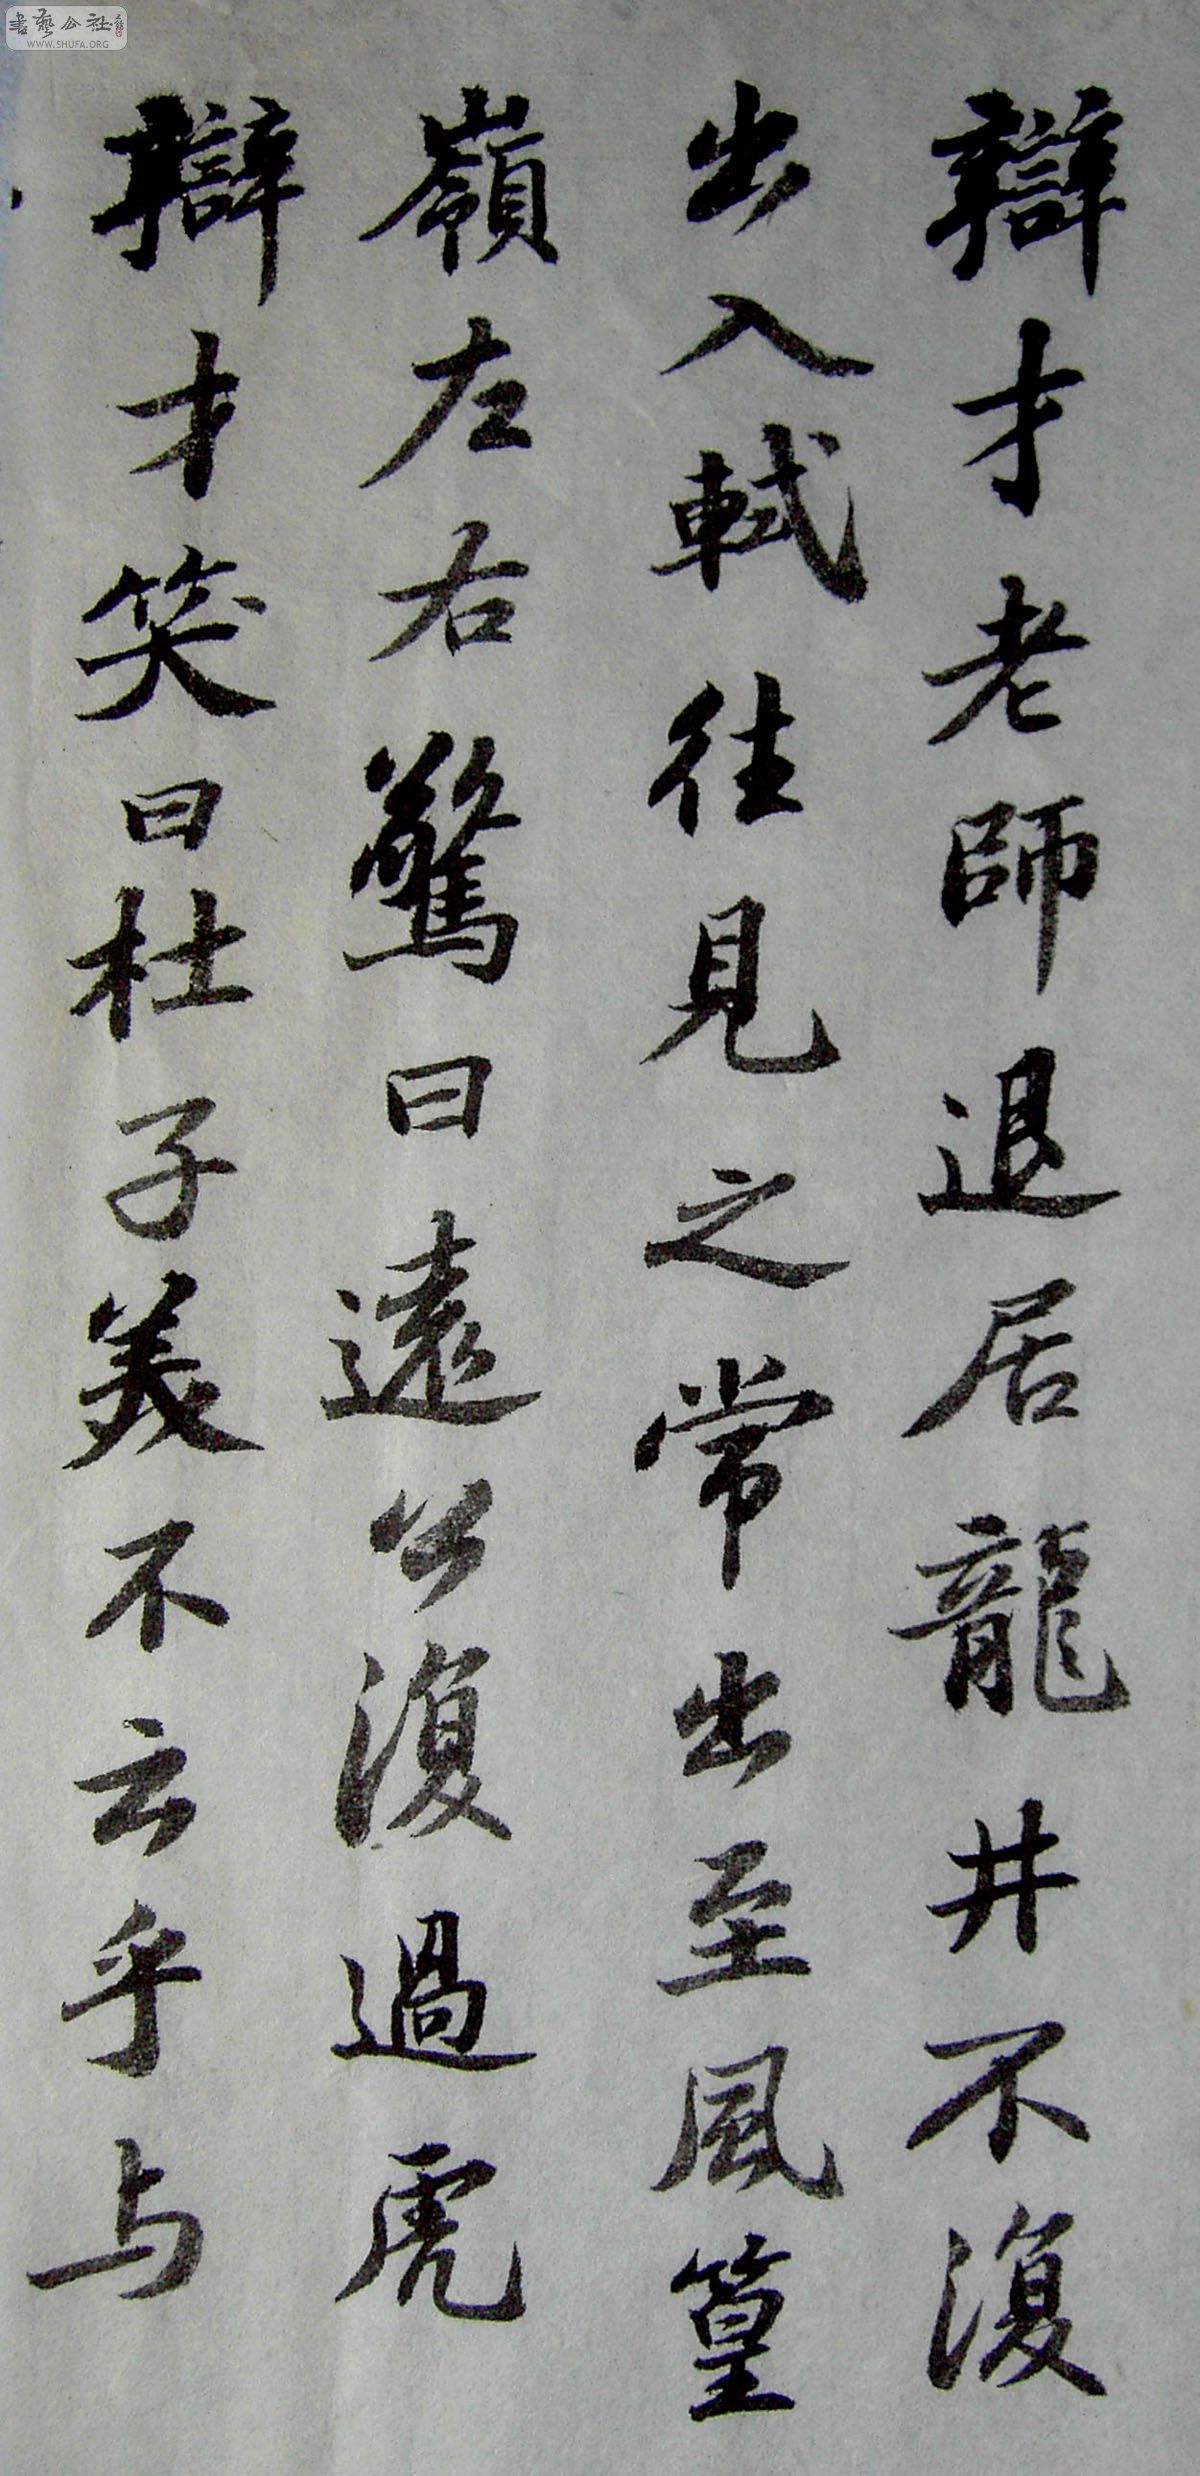 辯才老師退居龍井不復
出入軾往見之常出至風篁
嶺左右驚曰遠公復過虎
辯才笑曰杜子美不云乎与
書藝公社
WWW.SHUFA.ORG